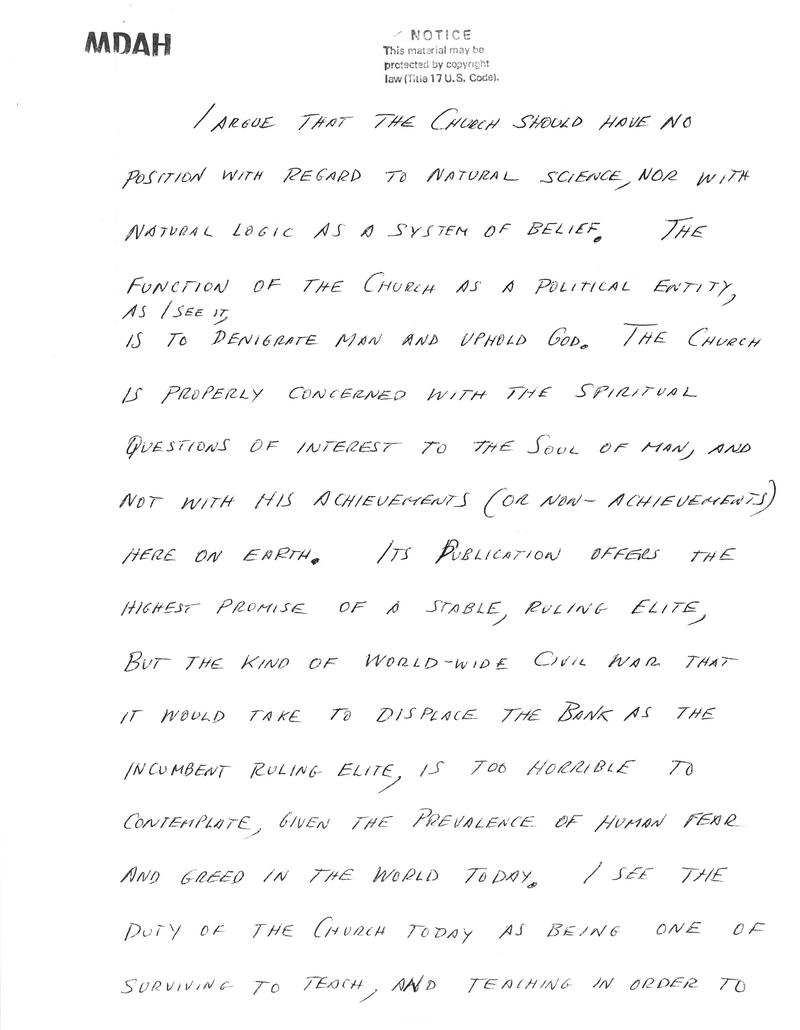 MDAH
NOTICE
This material may be
protected by copyright
law (Title 17 U.S. Code).
I ARGUE THAT THE CHURCH SHOULD HAVE NO
POSITION WITH REGARD TO NATURAL SCIENCE, NOR WITH
NATURAL LOGIC AS A SYSTEM OF BELIEF. THE
FUNCTION OF THE CHURCH AS A POLITICAL ENTITY,
AS I SEE IT,
IS TO DENIGRATE MAN AND UPHOLD GOD. THE CHURCH
IS PROPERLY CONCERNED WITH THE SPIRITUAL
QUESTIONS OF INTEREST TO THE SOUL OF MAN, AND
NOT WITH HIS ACHIEVEMENTS (OR NON- ACHIEVEMENTS)
HERE ON EARTH. ITS PUBLICATION OFFERS THE
HIGHEST PROMISE OF A STABLE, RULING ELITE,
BUT THE KIND OF WORLD-WIDE CIVIL WAR THAT
IT WOULD TAKE TO DISPLACE THE BANK AS THE
INCUMBENT RULING ELITE, IS TOO HORRIBLE TO
CONTEMPLATE, GIVEN THE PREVALENCE OF HUMAN FEAR
AND GREED IN THE WORLD TODAY. I SEE THE
DUTY OF THE CHURCH TODAY AS BEING ONE OF
SURVIVING TO TEACH, AND TEACHING IN ORDER TO